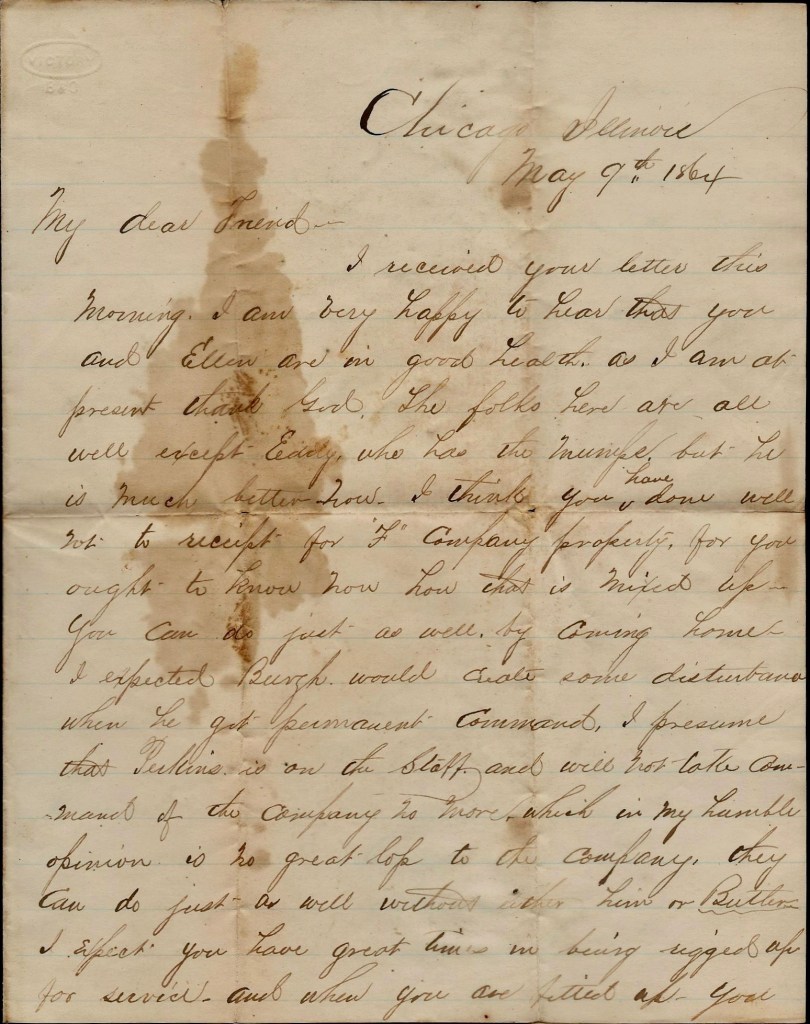 VICTORY
Chicago Illinois
May 9th 1864
My dear Friend—
I received your letter this
Morning. I am very happy to hear that you
and Ellen are in good health. as I am at
present thank God. The folks here are all
well except Eddy, who has the Mumps, but he
is much better now— I think you have done well
not to receipt for "F" Company property, for you
ought to know how that is mixed up—
You can do just as well. by coming home—
I expected Burgh. would create some disturbance
when he got permanent Command, I presume
that Perkins is on the Staff and will not take com-
mand of the company no more, which in my humble
opinion is no great loss to the company, they
can do just as well without either him or Butler—
I expect you have great times in being rigged up
for service— and when you are fitted up— you